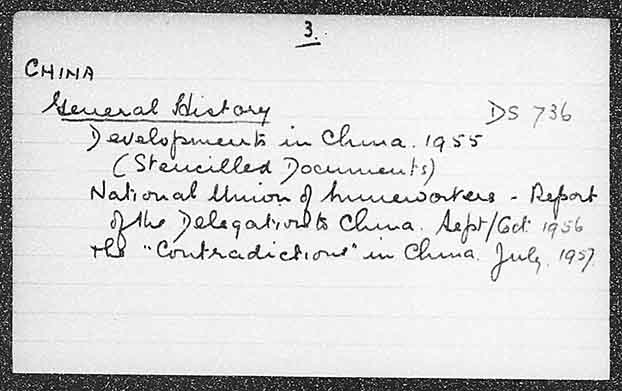 3.
CHINA
General History DS 736
Developments in China. 1955
(Stencilled Documents)
National Union of Mineworkers - Report
of the Delegation to China. Sept/Oct 1956
The "Contradictions" in China. July, 1957.